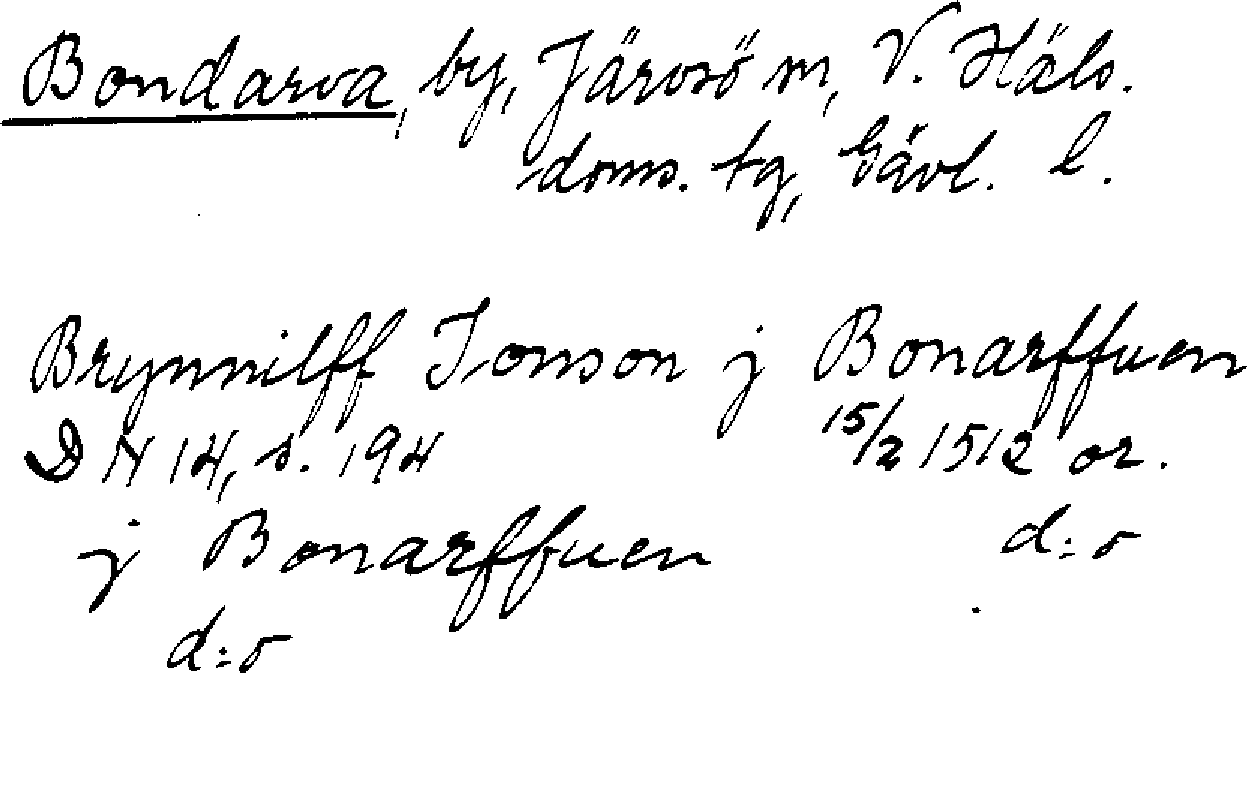 Bondarva, by, Järvsö sn, V. Häls.
doms. tg, Gävl. l.
Brynnilff Jonson j Bonarffuen
DN 14, s. 194 15/2 1512 or.
j Bonarffuen d:o
d:o